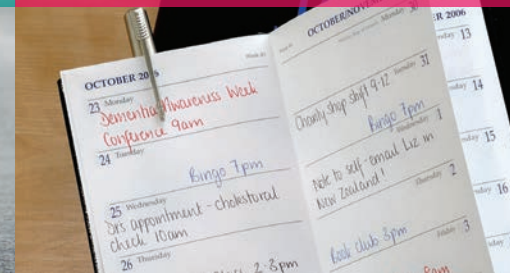 OCTOBER 20
23 Monday
Dementia Awareness Week
Conference 9am
24 Tuesday
Bingo 7pm
25 Wednesday
Drs appointment - cholestoral
check 10am
26 Thursday
2-3pm
OCTOBER/NOVEMBER
Monday 30
Tuesday 31
Charity shop shift 9-12
Bingo 7pm
Wednesday 1
Note to self - email Liz in
New Zealand!
Thursday 2
Book club 3pm
Friday 3
8am
R 2006
13
14
15
16